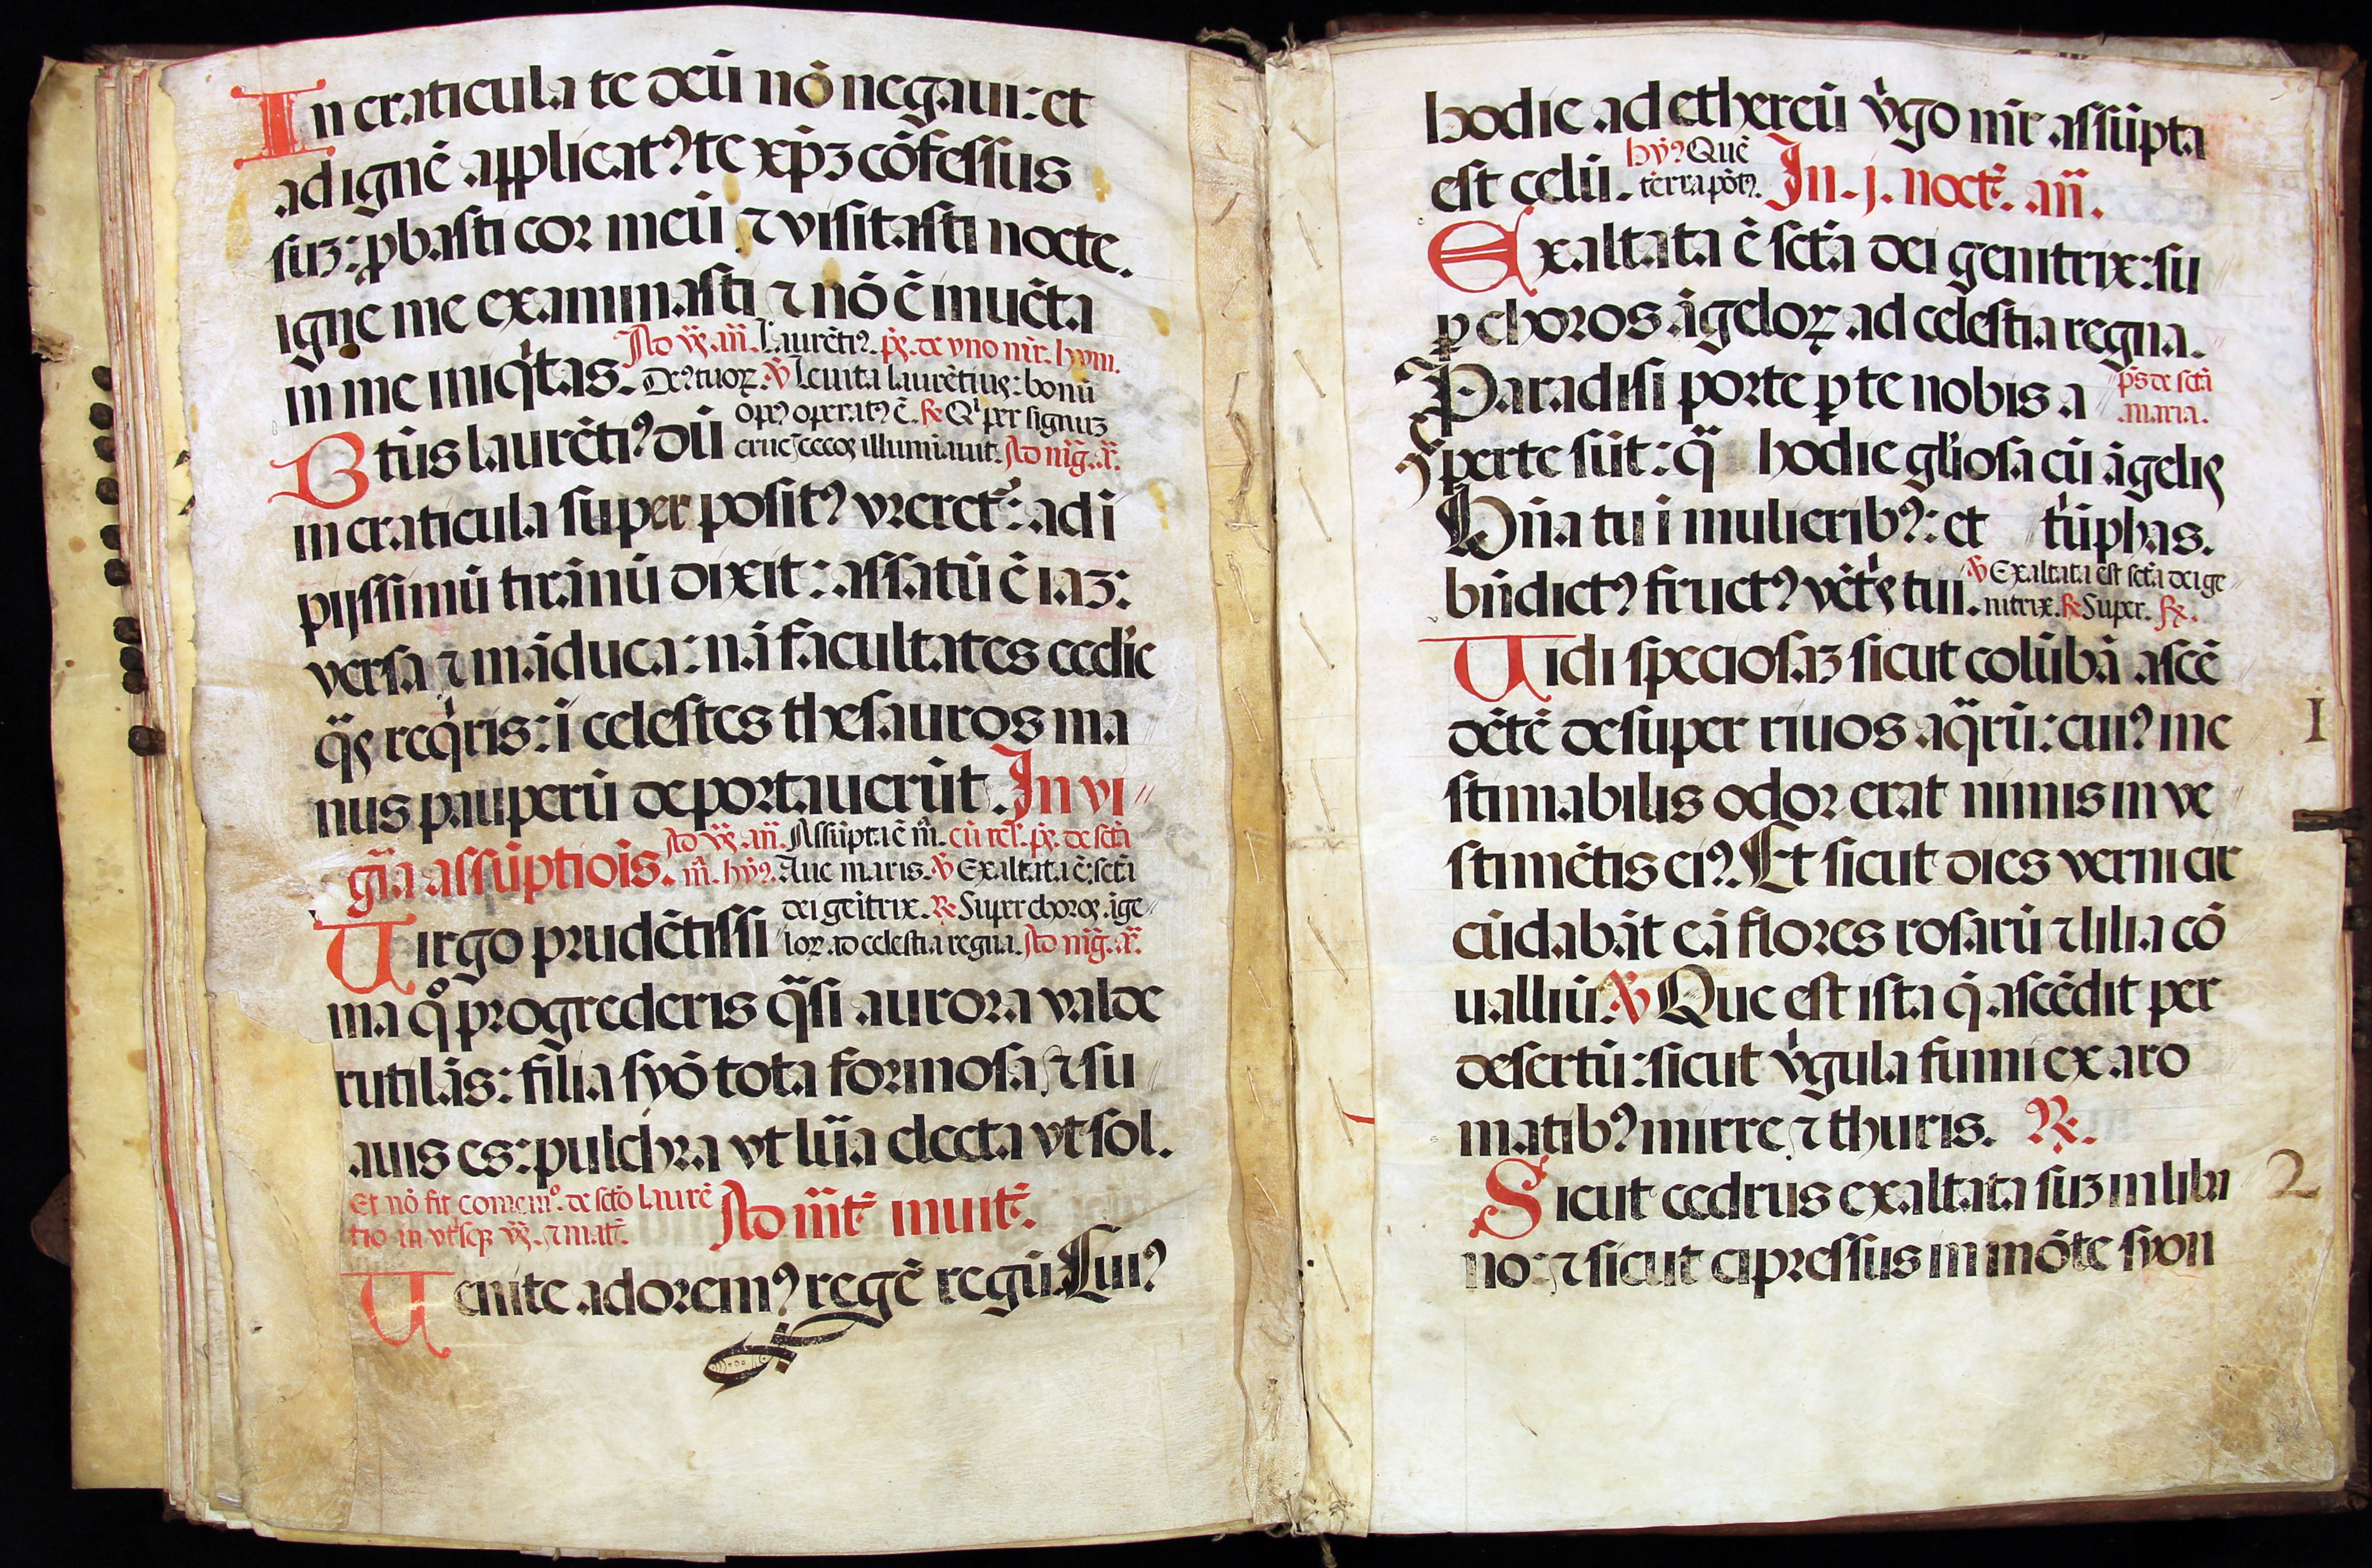 In craticula te deū nō negaui: et
ad ignē applicatꝰ te xp̄ꝫ cōfessus
suꝫ: ꝓbasti cor meū ⁊ visitasti nocte.
igne me examinasti ⁊ nō ē inuēta
in me iniqͥtas.
Ad v̄ꝝ. an̄. Laurētiꝰ. pͣ. de vno mr̄. hym.
Deꝰ tuoꝝ. ℣ Leuita laurētius: bonū
opꝰ operatꝰ ē. ℟ Qͥ per signuꝫ
crucis cecos illumīauit. Ad mḡ. a͞.
Btūs laurētiꝰ dū
in craticula super positꝰ vreret᷑: ad ī
pijssimū tirānū dixit: assatū ē iaꝫ:
versa ⁊ māduca: nā facultates ecclīe
qͣs reqͥris: ī celestes thesauros ma
nus pauperū deportauerūt. In vi
gīa assūptiōis.
Ad v̄ꝝ. an̄. Assūpta ē m̄. cū rel̄. pͣ. de sctā
m̄. hȳꝰ. Aue maris. ℣ Exaltata ē: sctā
dei geītrix. ℟ Super choros āge
loꝝ ad celestia regna. Ad mḡ. a͞.
Uirgo prudētissi
ma qͦ progrederis qͣsi aurora valde
rutilās: filia syō tota formosa ⁊ su
auis es: pulchra vt lūa electa vt sol.
Et nō fit comemº. de sctō laurē
tio in vtͥsqꝫ v̄ꝝ. ⁊ mat᷑.
Ad mt᷑ inuit᷑.
Uenite adoremꝰ regē regū. Cuiꝰ
hodie ad ethereū vͥgo mr̄ assūpta
est celū.
hȳꝰ Quē
terra pōtꝰ.
In .j. noct᷑. an̄.
Exaltata ē sctā dei genitrix: su
ꝑ choros āgeloꝝ ad celestia regna.
Paradisi porte ꝑ te nobis a
ps̄ de sctā
maria.
perte sūt: q̄ hodie glīosa cū āgelis
Bn̄a tu ī mulieribꝰ: et tͥūphas.
bn̄dictꝰ fructꝰ vētͥs tui.
℣ Exaltata est sctā dei ge
nitrix. ℟ Super. ℟.
Uidi speciosaꝫ sicut colūbā ascē
dētē desuper riuos aqͣrū: cuiꝰ ine
stimabilis odor erat nimis in ve
stimētis eiꝰ. Et sicut dies verni cir
cūdabāt eā flores rosarū ⁊ lilia cō
ualliū. ℣ Que est ista q̄ ascēdit per
desertū: sicut vͥgula fumi ex aro
matibꝰ mirre ⁊ thuris. ℟.
Sicut cedrus exaltata suꝫ in liba
no: ⁊ sicut cipressus in mōte syon
I
2